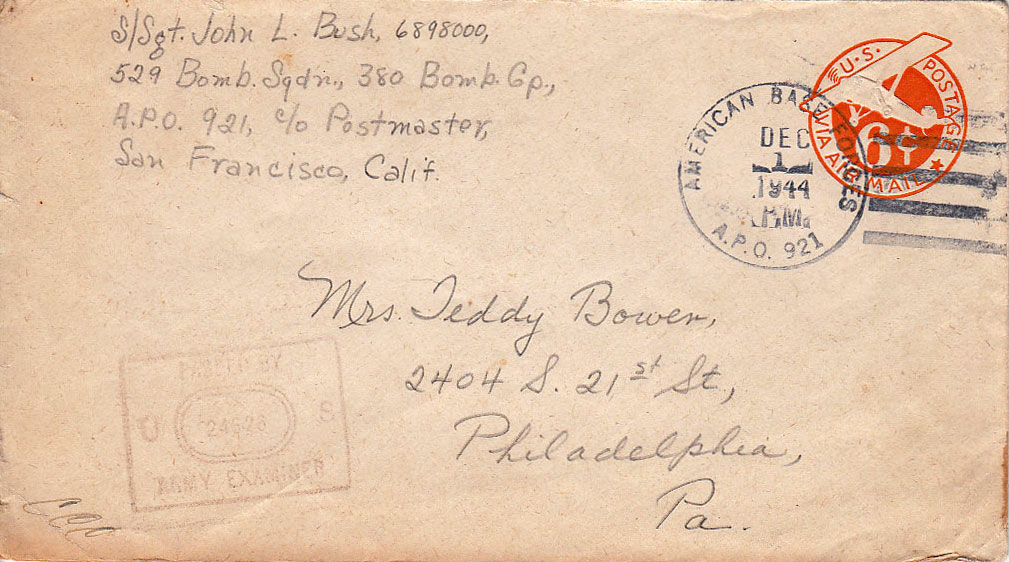 S/Sgt. John L. Bush, 6898000,
529 Bomb. Sqdn., 380 Bomb. Gp.,
A.P.O. 921, c/o Postmaster,
San Francisco, Calif.
U.S. POSTAGE
VIA AIR MAIL
6¢
AMERICAN BASE FORCES
DEC
1
1944
P.M.
A.P.O. 921
Mrs. Teddy Bower,
2404 S. 21st St,
Philadelphia,
Pa.
BY
U S
ARMY EXAMINER